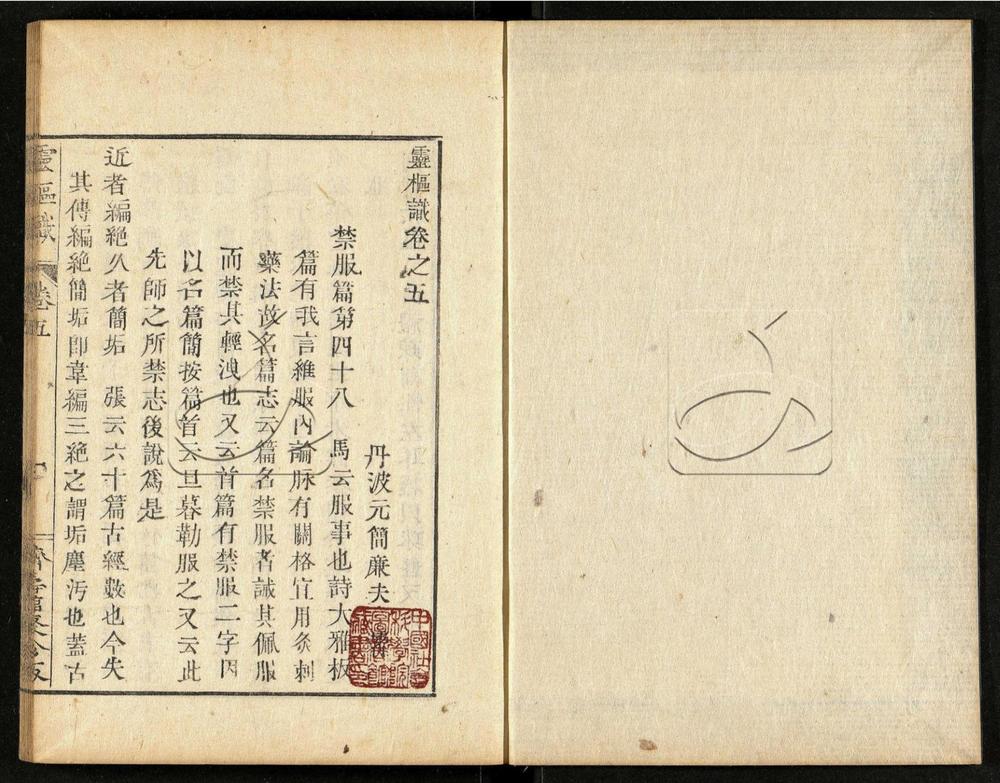 靈樞識卷之五
丹波元簡廉夫
禁服篇第四十八 馬云服事也詩大雅板
篇有我言維服內論脉有關格宜用灸刺
藥法故名篇志云篇名禁服者誡其佩服
而禁其輕洩也又云首篇有禁服二字因
以名篇簡按篇首云旦暮勤服之又云此
先師之所禁志後說爲是
近者編絶久者簡垢 張云六十篇古經數也今失
其傳編絶簡垢即韋編三絶之謂垢塵汚也蓋古
靈樞識 卷五